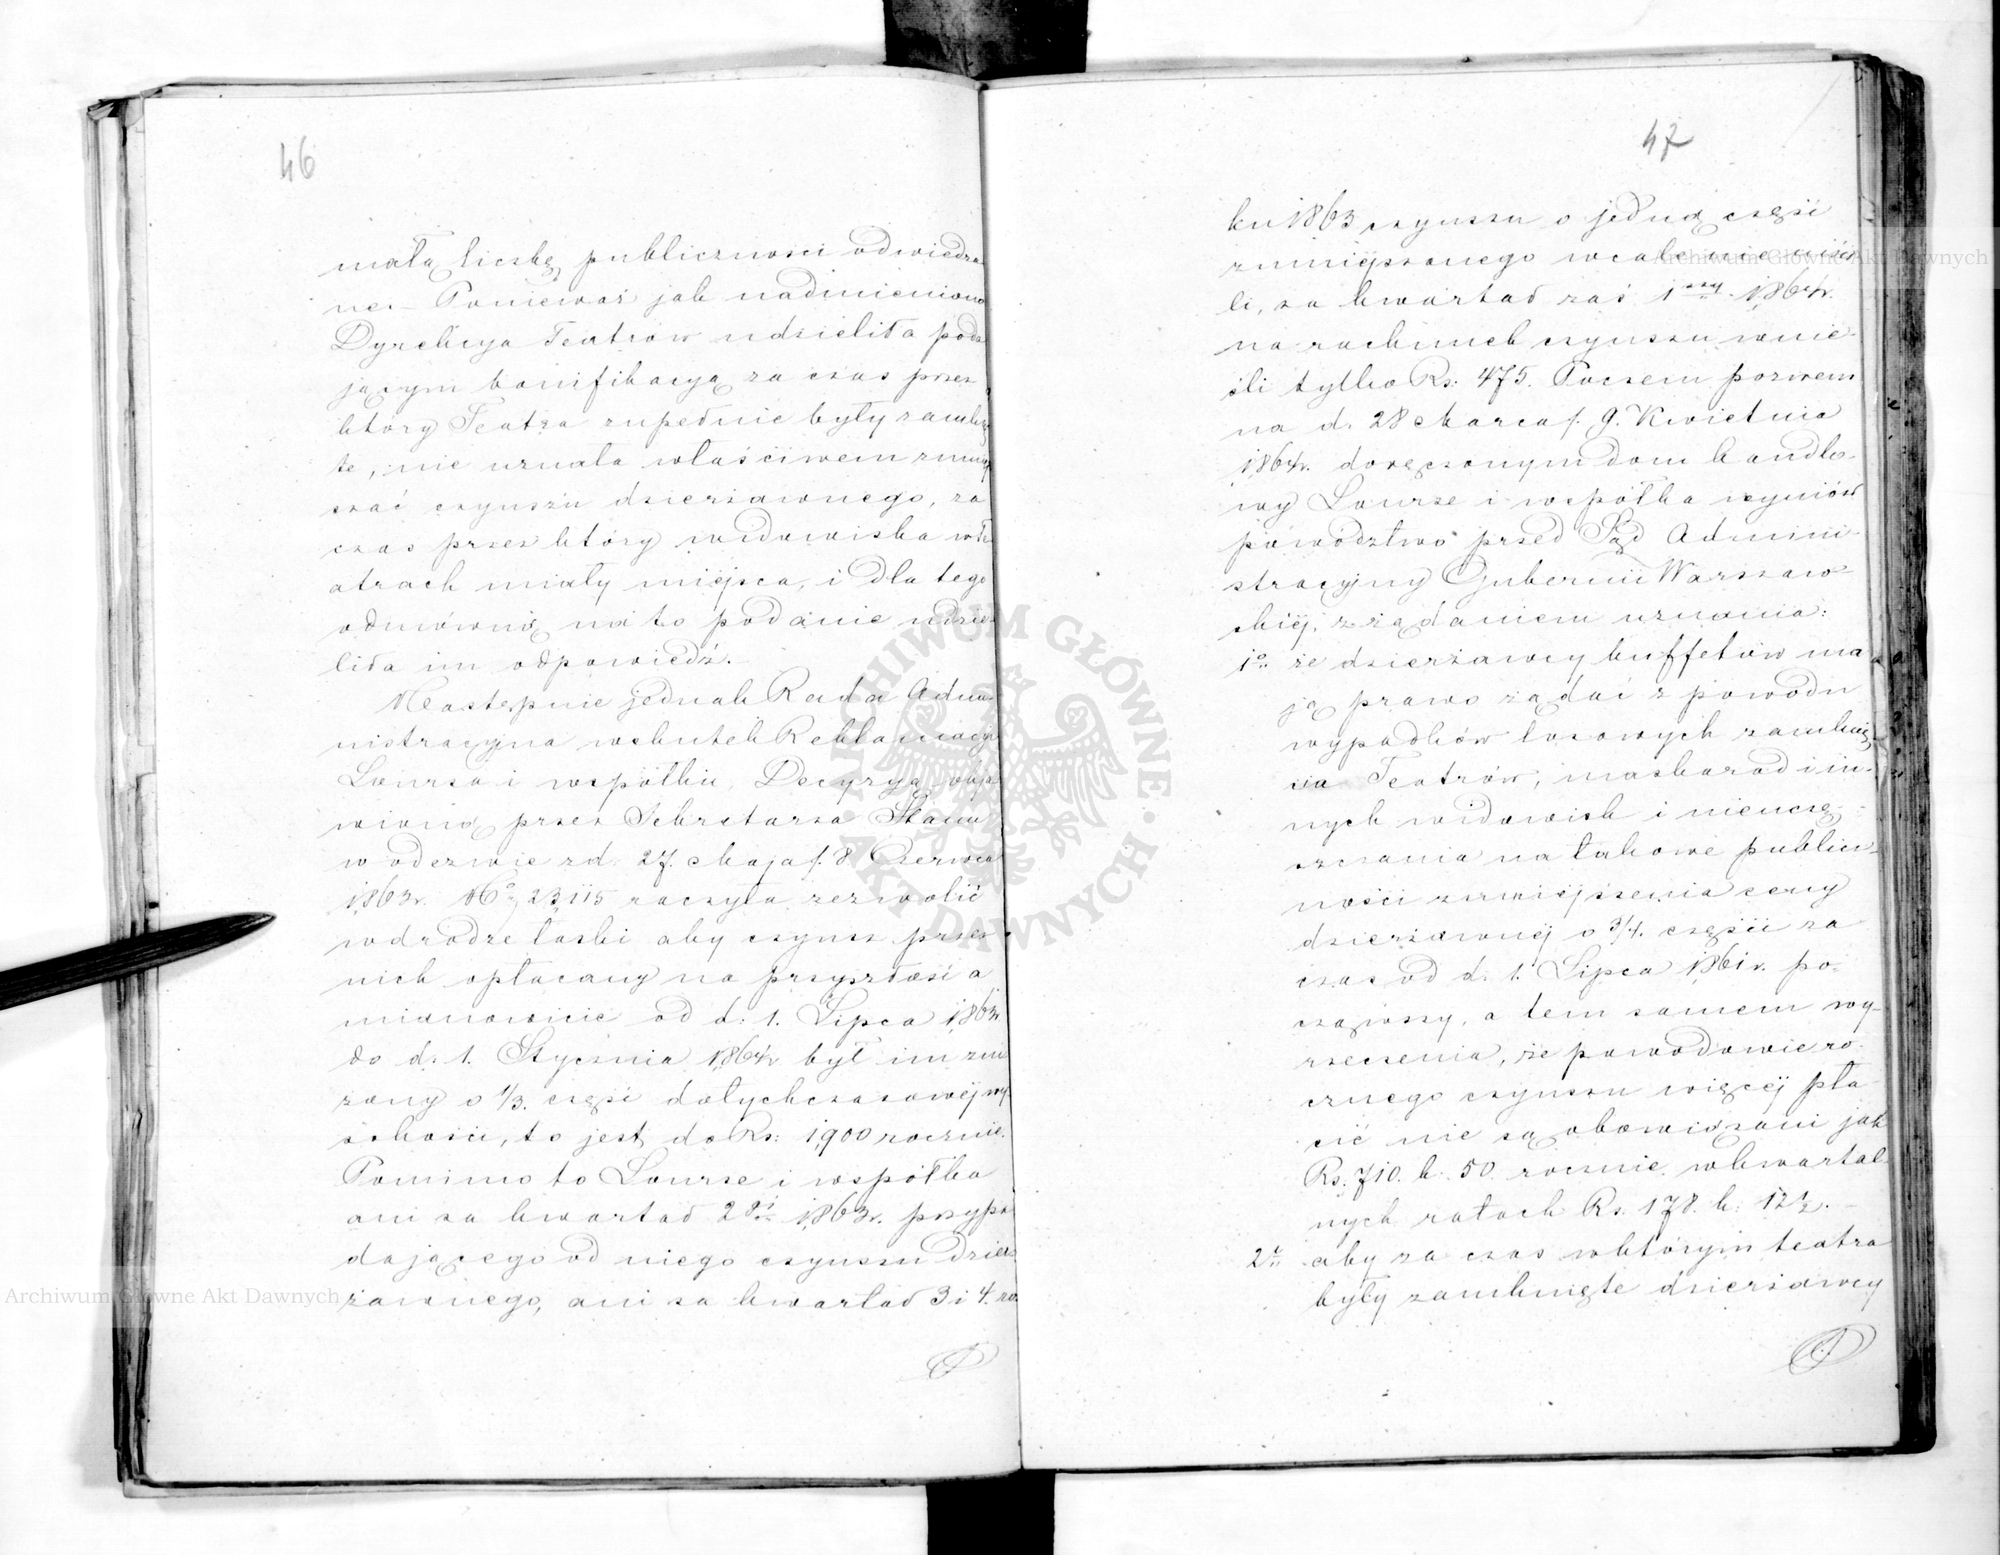 46
małą liczbę publiczności odwiedza
ne. Ponieważ jak nadmieniono
Dyrekcya Teatrów udzieliła poda
jącym bonifikacyą za czas przez
który Teatra zupełnie były zamknię
te, nie uznała właściwem zmniej
szać czynszu dzierżawnego, za
czas przez który widowiska w te
atrach miały miejsca, i dla tego
odmówną na to podanie udzie
liła im odpowiedź.
Następnie jednak Rada Admi
nistracyjna wskutek Reklamacyi
Loursa i współki, Decyzyą obja
wioną przez Sekretarza Stanu
w odezwie z d. 27. Maja /. 8 Czerwca
1863r. No 23,115 raczyła zezwolić
w drodze łaski aby czynsz przez
nich opłacany na przyszłość a
mianowicie od d. 1. Lipca 1863r
do d. 1. Stycznia 1864r był im zni
żony o 1/3. część dotychczasowéj wy
sokości, to jest do Rs: 1,900 rocznie.
Pomimo to Lourse i współka
ani za kwartał 2gi 1863r. przypa
dającego od niego czynszu dzier
żawnego, ani za kwartał 3 i 4. ro
47
ku 1863 czynszu o jedną część
zmniejszonego wcale nie uiści
li, za kwartał zaś 1szy. 1864r.
na rachunek czynszu wnie
śli tylko Rs. 475. Poczem pozwem
na d. 28 Marca /. 9. Kwietnia
1864r. doręczonym dom handlo-
wy Lourse i współka wyniósł
powództwo przed Sąd Admini
stracyjny Gubernii Warszaw-
skiéj, z żądaniem uznania:
1o. że dzierżawcy buffetów ma
ją prawo żądać z powodu
wypadków losowych zamknię
cia Teatrów, maskarad i in-
nych widowisk i nieuczę-
szczania na takowe publicz-
ności zmniejszenia ceny
dzierżawnéj o 3/4. części za
czas od d. 1. Lipca 1861r. po-
cząwszy, a tem samem wy-
rzeczenia, że powodowie ro-
cznego czynszu więcéj pła-
cić nie są obowiązani jak
Rs. 710. k. 50. rocznie, w kwartal
nych ratach Rs. 178. k. 12 1/2. -
2o aby za czas w którym teatra
były zamknięte dzierżawcy
ARCHIWUM GŁÓWNE AKT DAWNYCH
Archiwum Główne Akt Dawnych
Archiwum Główne Akt Dawnych